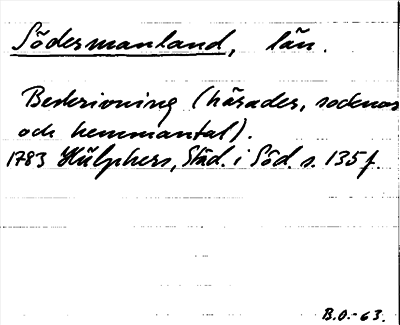 Södermanland, län.
Beskrivning (härader, socknar
och hemmantal).
1783 Hülphers, Städ. i Söd. s. 135 f.
B.O.-63.